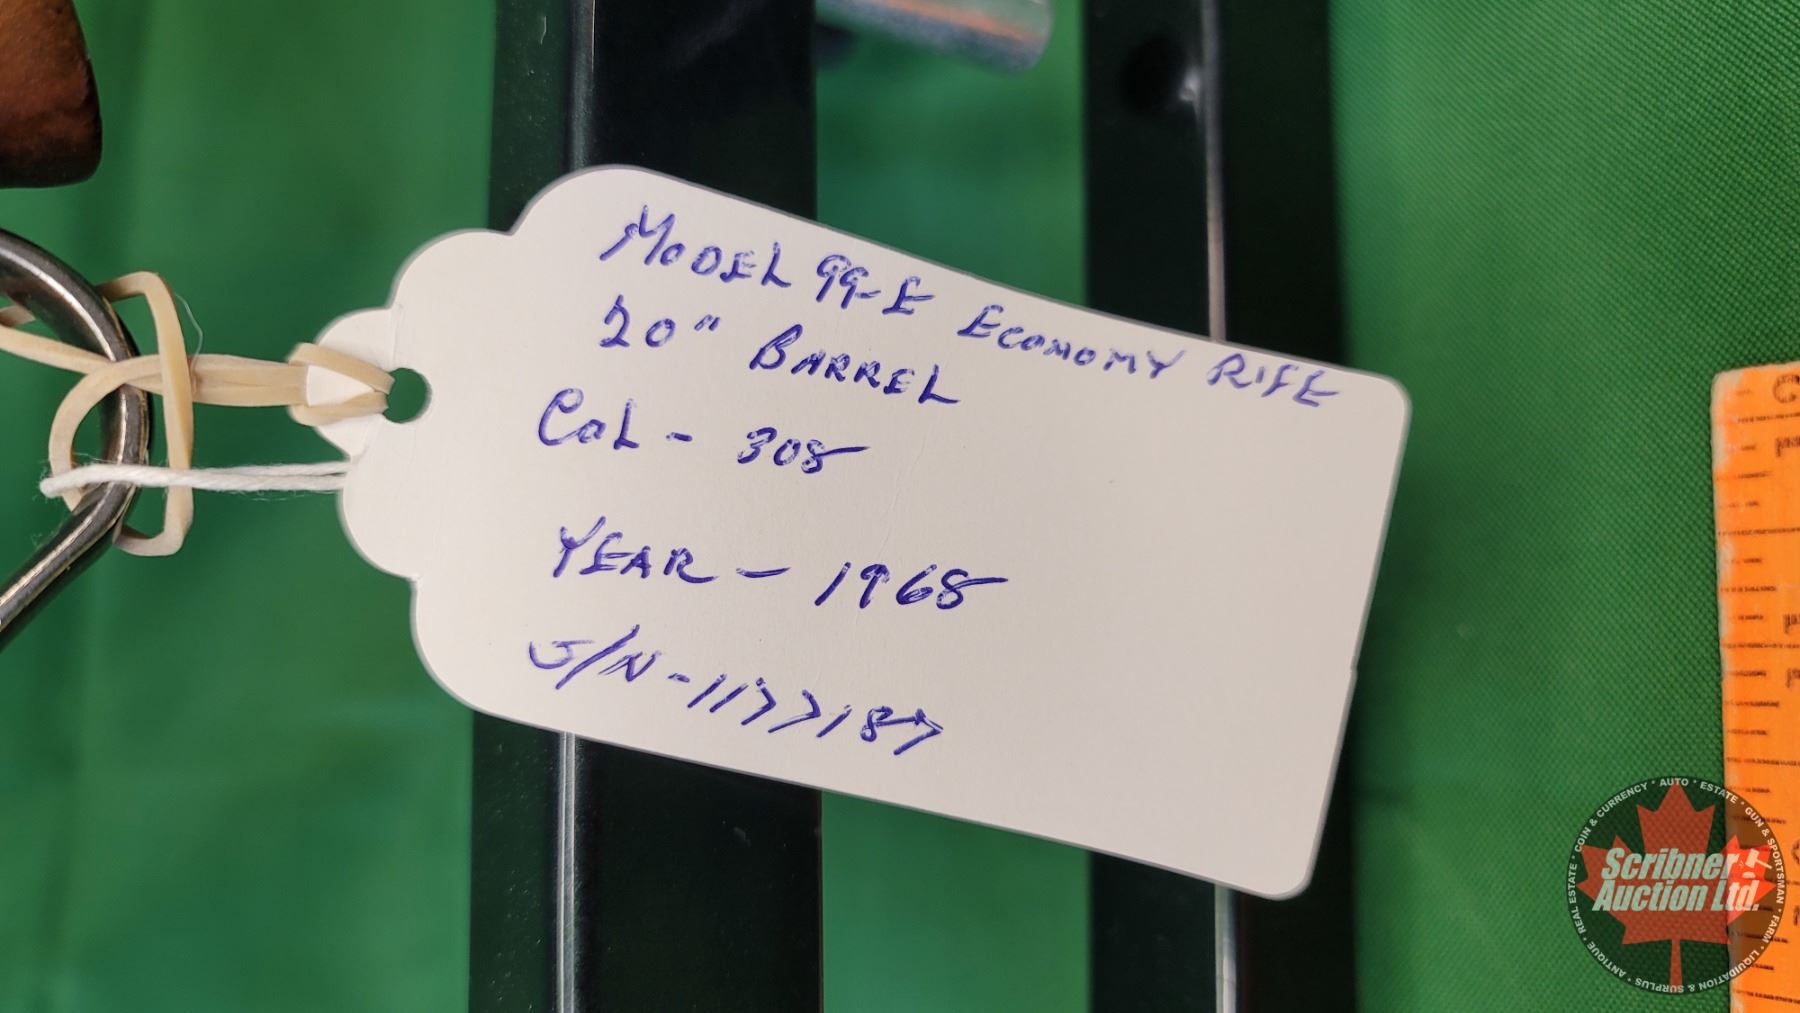 MODEL 99-E ECONOMY RIFE
20" BARREL
CAL - 308
YEAR - 1968
S/N - 1177187
Scribner
Auction Ltd.
REAL ESTATE • COIN & CURRENCY • AUTO • ESTATE • GUN & SPORTSMAN • FARM • LIQUIDATION & SURPLUS • ANTIQUE •